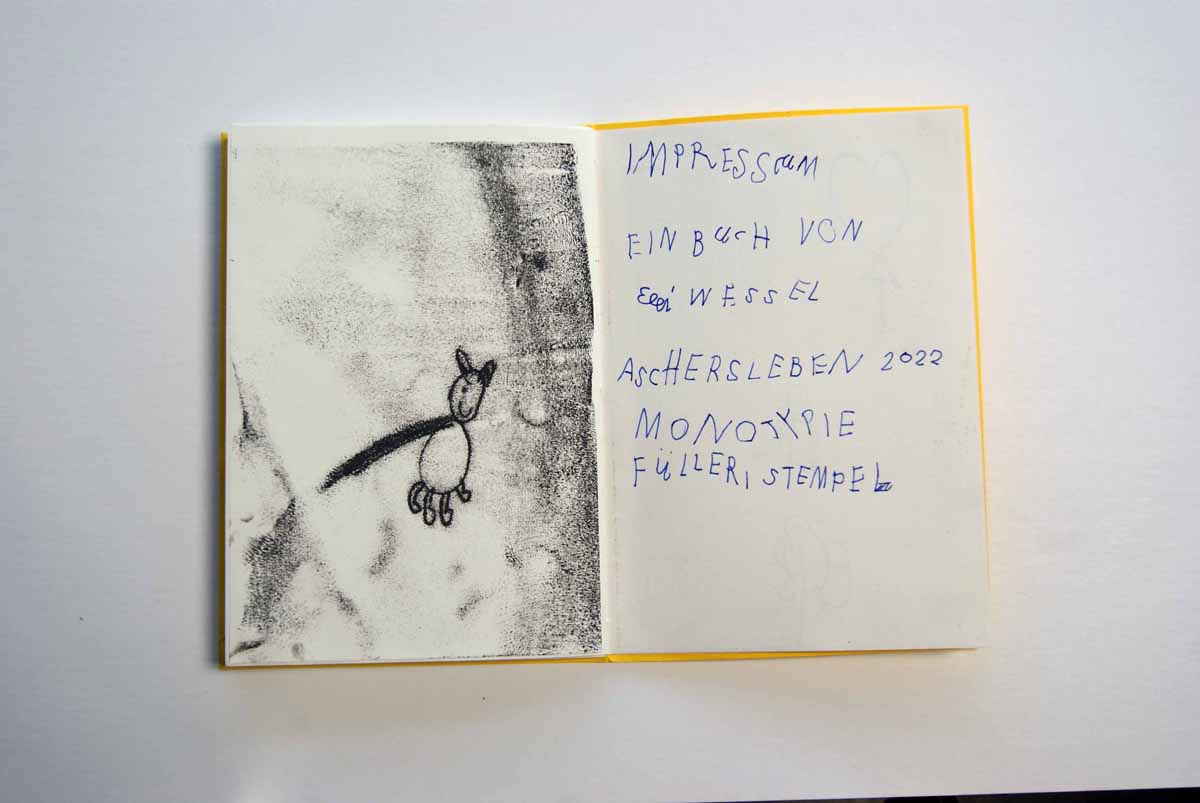 IMPRESSuM
EIN BucH VON
Elli WESSEL
ASCHERSLEBEN 2022
MONOTYPIE
FÜLLER, STEMPEL